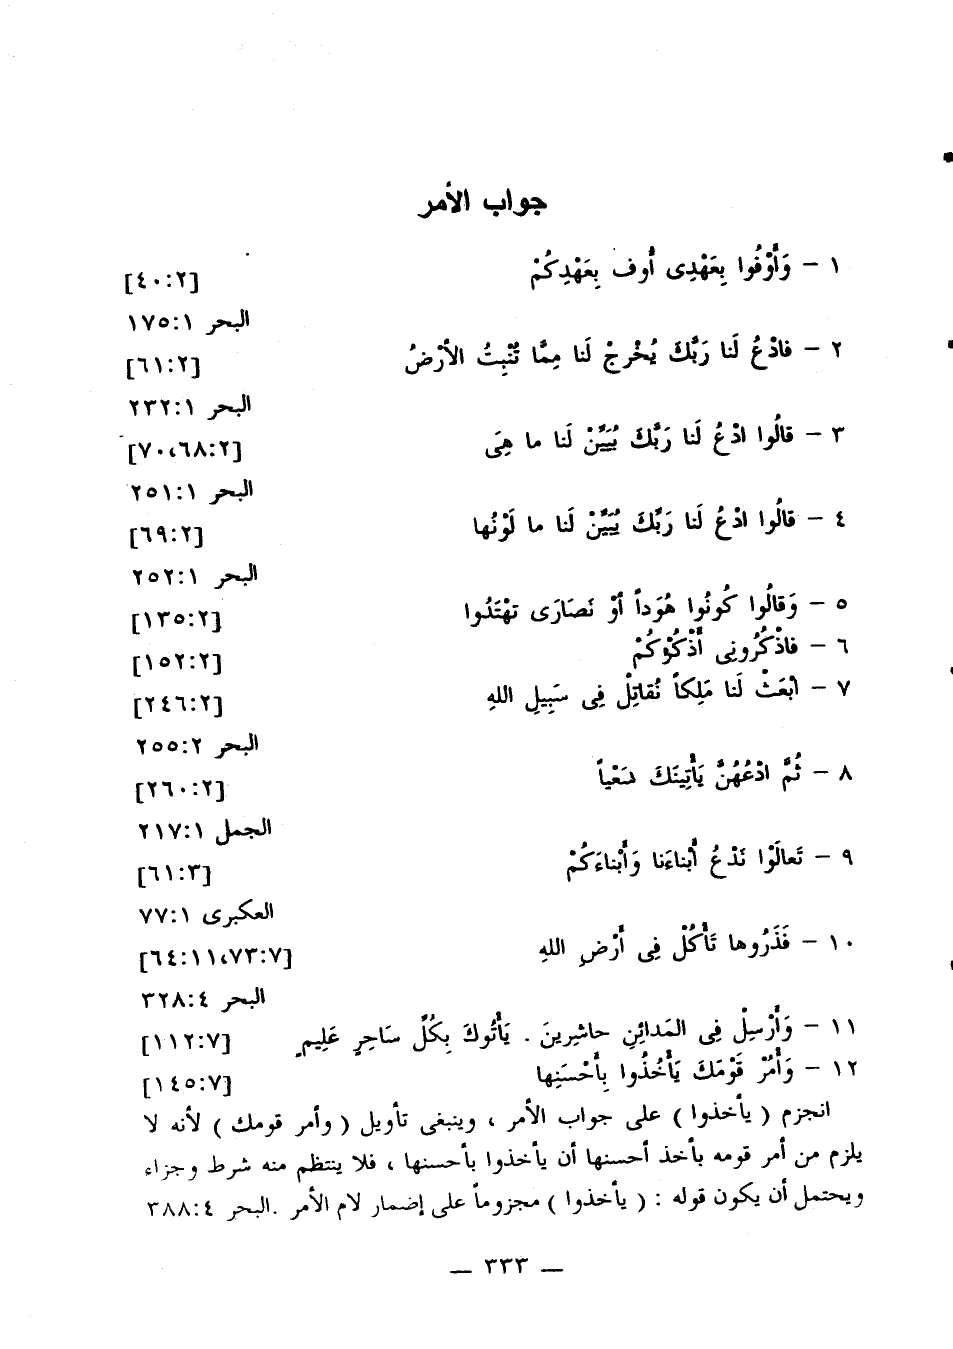 جواب الأمر
١ – وَأَوْفُوا بِعَهْدِى أُوف بِعَهْدِكُمْ [٤٠:٢]
البحر ١٧٥:١
٢ – فادْعُ لَنا رَبَّكَ يُخْرِجْ لَنا مِمَّا تُنْبِتُ الأَرْضُ [٦١:٢]
البحر ٢٣٢:١
٣ – قالُوا ادْعُ لَنا رَبَّكَ يُبَيِّنْ لَنا ما هِىَ [٧٠،٦٨:٢]
البحر ٢٥١:١
٤ – قالُوا ادْعُ لَنا رَبَّكَ يُبَيِّنْ لَنا ما لَوْنُها [٦٩:٢]
البحر ٢٥٢:١
٥ – وَقالُوا كُونُوا هُوَداً أوْ نَصَارَى تهْتَدُوا [١٣٥:٢]
٦ – فاذْكُرُونِى أَذْكُرْكُمْ [١٥٢:٢]
٧ – ابْعَثْ لَنا مَلِكاً نُقاتِلْ فِى سَبِيلِ اللهِ [٢٤٦:٢]
البحر ٢٥٥:٢
٨ – ثُمَّ ادْعُهُنَّ يَأْتِينَكَ سَعْياً [٢٦٠:٢]
الجمل ٢١٧:١
٩ – تَعالَوْا نَدْعُ أَبْناءَنا وَأَبْناءَكُمْ [٦١:٣]
العكبرى ٧٧:١
١٠ – فَذَرُوها تَأْكُلْ فِى أَرْضِ اللهِ [٦٤:١١،٧٣:٧]
البحر ٣٢٨:٤
١١ – وَأَرْسِلْ فِى المَدائِنِ حاشِرِينَ . يَأْتُوكَ بِكُلِّ سَاحِرٍ عَلِيمٍ [١١٢:٧]
١٢ – وَأْمُرْ قَوْمَكَ يَأْخُذُوا بِأَحْسَنِها [١٤٥:٧]
انجزم ( يأخذوا ) على جواب الأمر ، وينبغى تأويل ( وأمر قومك ) لأنه لا
يلزم من أمر قومه بأخذ أحسنها أن يأخذوا بأحسنها ، فلا ينتظم منه شرط وجزاء
ويحتمل أن يكون قوله : ( يأخذوا ) مجزوماً على إضمار لام الأمر .البحر ٣٨٨:٤
— ٣٣٣ —